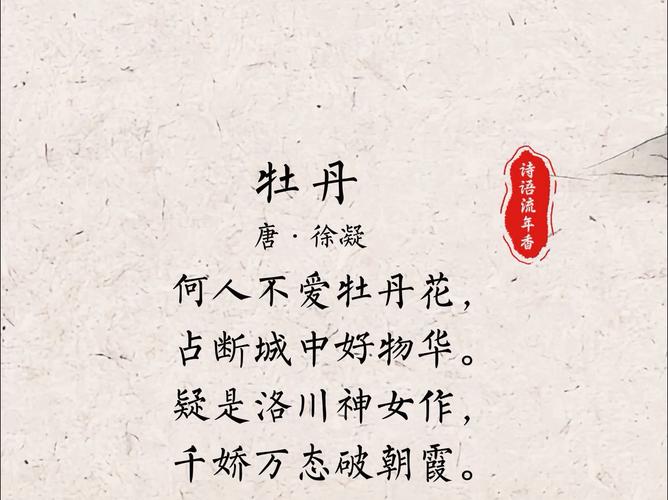 牡丹
唐·徐凝
何人不爱牡丹花，
占断城中好物华。
疑是洛川神女作，
千娇万态破朝霞。
诗语流年香